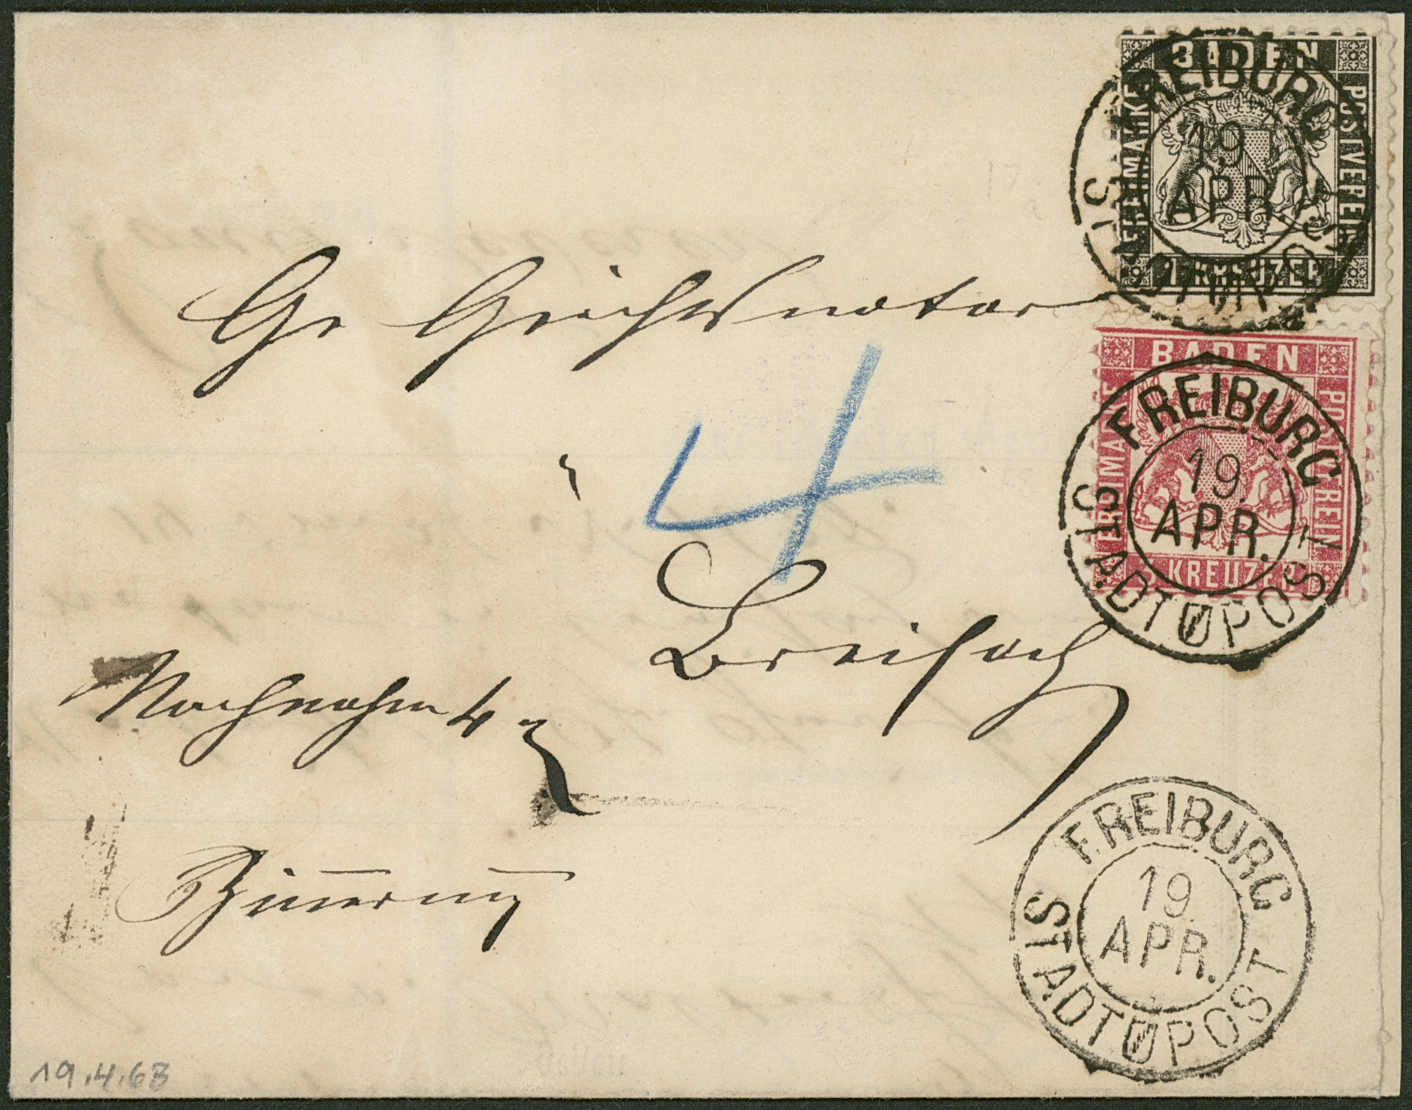 BADEN
FREIMARKE
POSTVEREIN
1 KREUZER
FREIBURG
19
APR.
STADTPOST
Gr Gerichtsnotar
BADEN
FREIMARKE
POSTVEREIN
3 KREUZER
FREIBURG
19
APR.
STADTPOST
4
Breisach
Nachnahme 4
FREIBURG
19
APR.
STADTPOST
19.4.68